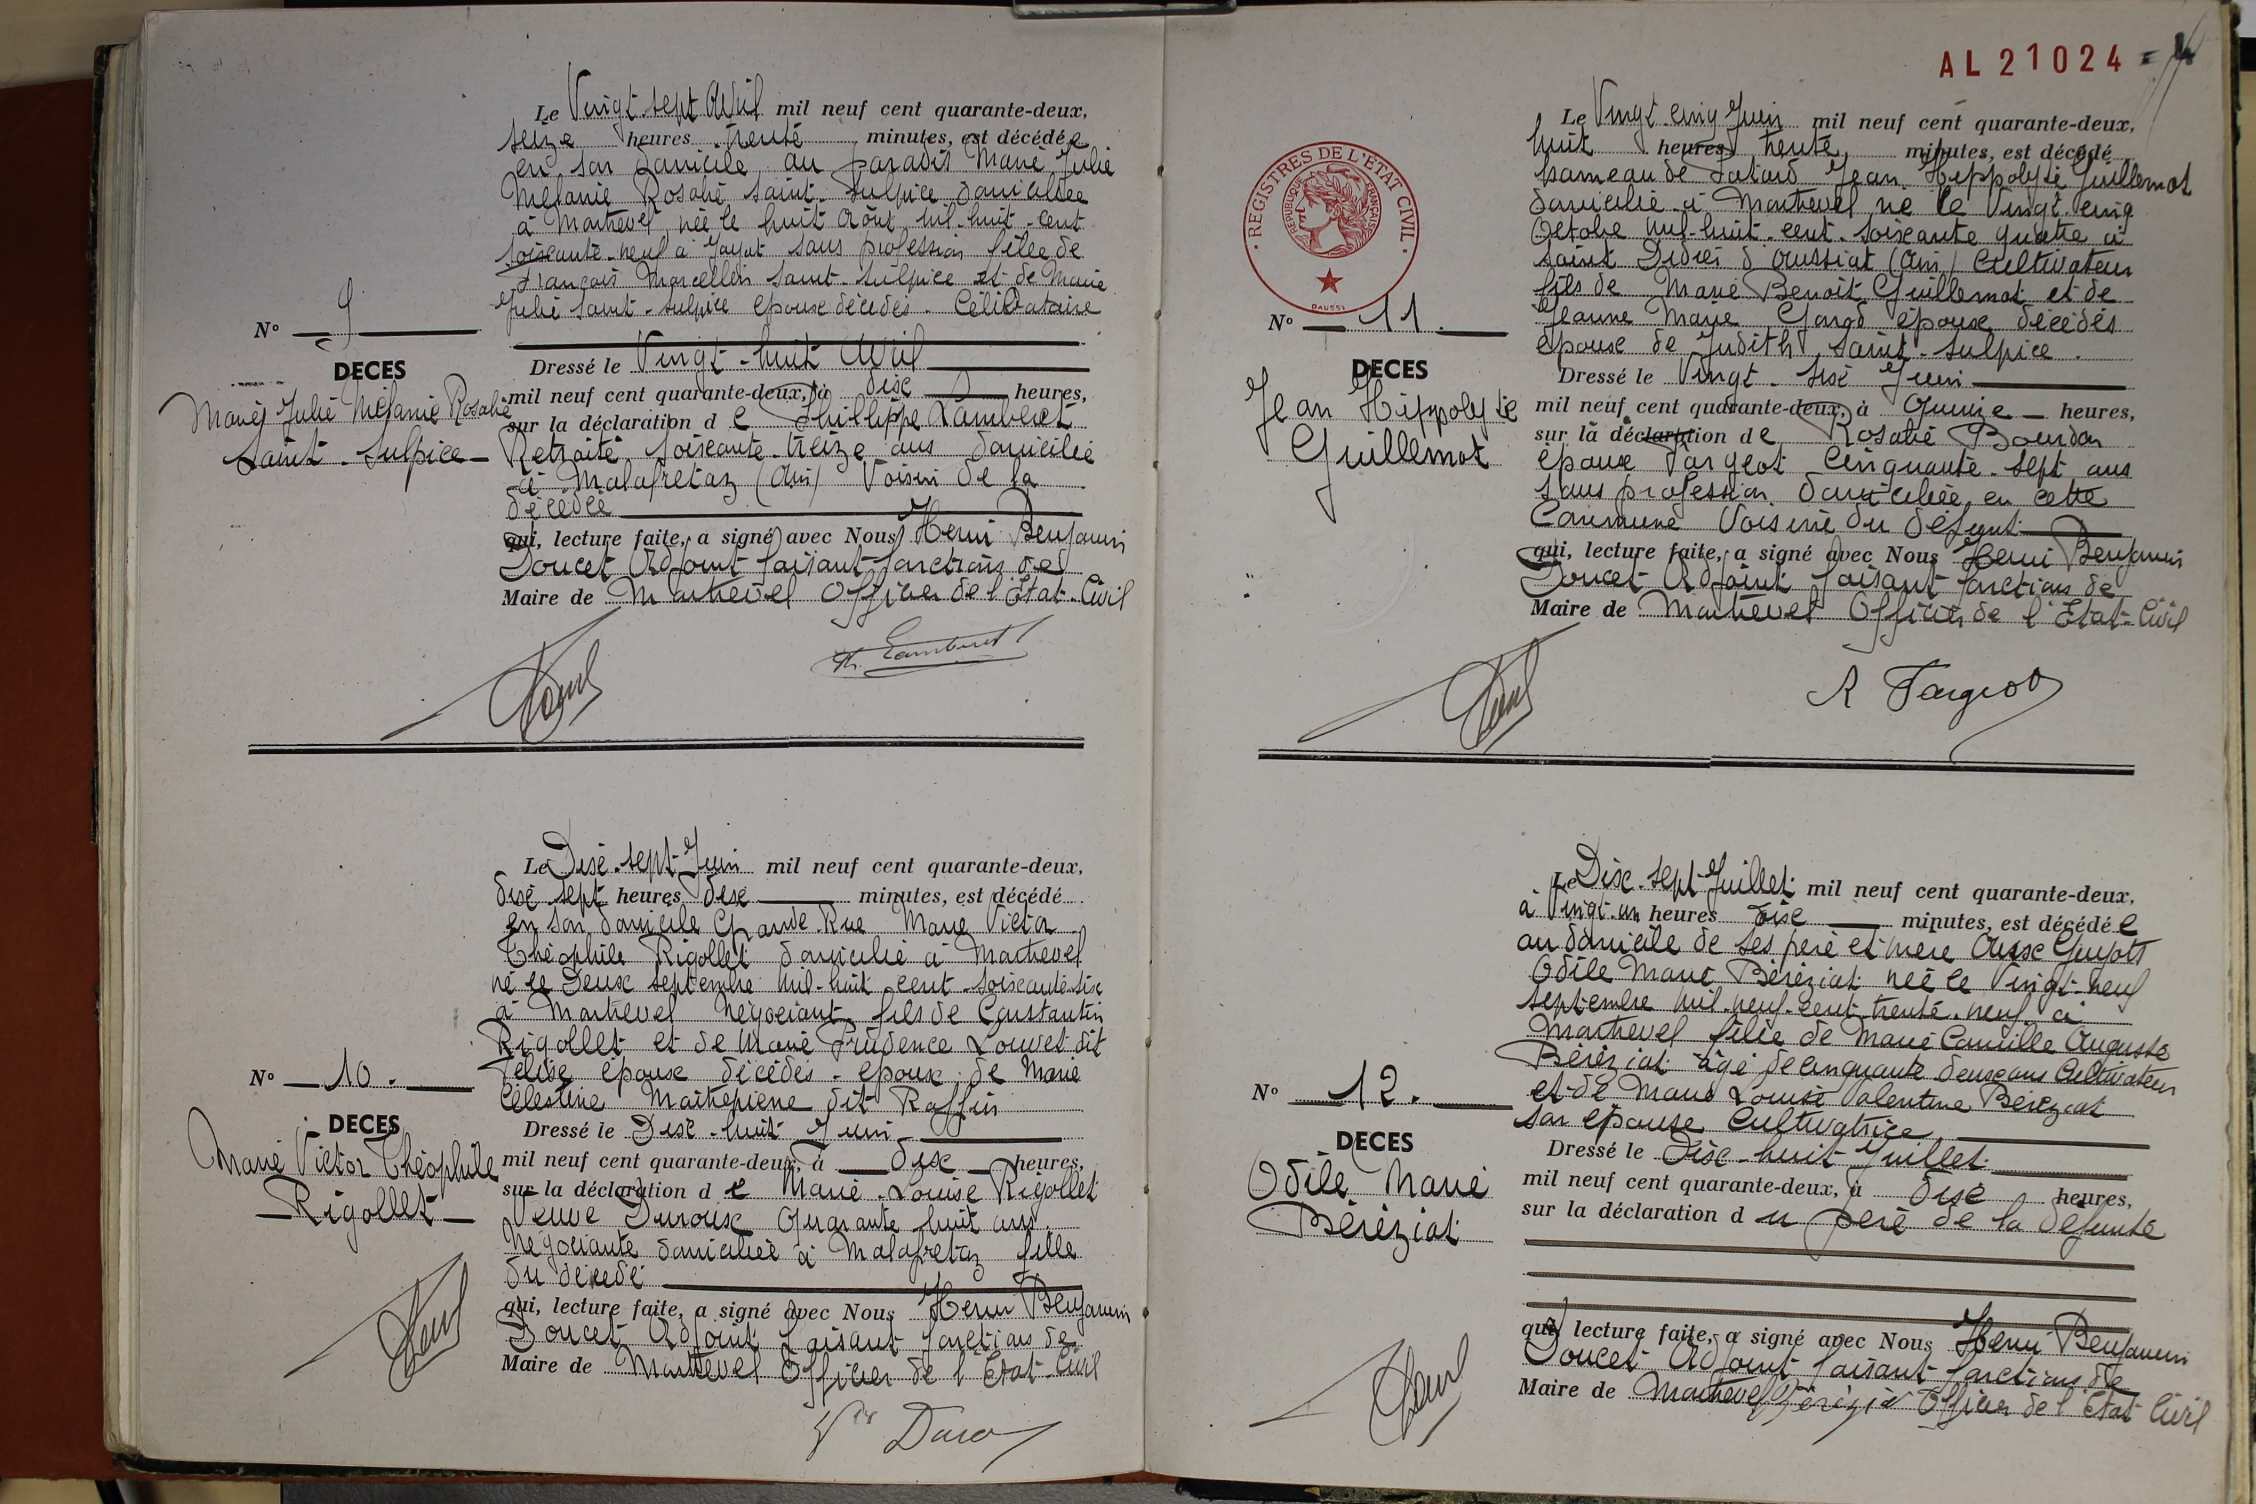 Le Vingt-sept Avril mil neuf cent quarante-deux,
seize heures trente minutes, est décédée
en son domicile au paradis Marie Julie
Mélanie Rosalie Saint-Sulpice domiciliée
à Marthevel née le huit Août mil-huit-cent
soixante-neuf à Jayat sans profession fille de
François Marcellin Saint-Sulpice et de Marie
Julie Saint-Sulpice époux décédés. Célibataire
N° 9
DECES
Marie Julie Mélanie Rosalie
Saint-Sulpice
Dressé le Vingt-huit Avril
mil neuf cent quarante-deux, à dix heures,
sur la déclaration de Philippe Lambert
Retraité soixante-treize ans domicilié
à Malafretaz (Ain) Voisin de la
décédée
qui, lecture faite, a signé avec Nous Henri Benjamin
Doucet Adjoint faisant fonctions de
Maire de Marthevel Officier de l'Etat-Civil
Ph. Lambert
Le Dix-sept Juin mil neuf cent quarante-deux,
dix sept heures dix minutes, est décédé
en son domicile Grande Rue Marie Victor
Théophile Rigollet domicilié à Marthevel
né le Deux septembre mil-huit cent-soixante-six
à Marthevel Négociant fils de Constantin
Rigollet et de Marie Prudence Louvet dit
Félise époux décédés - époux de Marie
Célestine Maitrepierre dit Raffin
N° 10.
DECES
Marie Victor Théophile
Rigollet
Dressé le Dix-huit Juin
mil neuf cent quarante-deux, à dix heures,
sur la déclaration de Marie-Louise Rigollet
Veuve Duroux Quarante huit ans
Négociante domiciliée à Malafretaz fille
du décédé
qui, lecture faite, a signé avec Nous Henri Benjamin
Doucet Adjoint faisant fonctions de
Maire de Marthevel Officier de l'Etat-Civil
Vve Duro
AL21024
Le Vingt-cinq Juin mil neuf cent quarante-deux,
huit heures trente minutes, est décédé
hameau de Jean Hippolyte Guillemot
domicilié à Marthevel né le Vingt-cinq
Octobre mil-huit-cent-soixante quatre à
Saint Didier d'Aussiat (Ain) Cultivateur
fils de Marie Benoît Guillemot et de
Jeanne Marie époux décédés
époux de Judith Saint-Sulpice.
REGISTRES DE L'ETAT CIVIL
REPUBLIQUE FRANÇAISE
DAUSSI
N° 11.
DECES
Jean Hippolyte
Guillemot
Dressé le Vingt-six Juin
mil neuf cent quarante-deux, à Quinze heures,
sur la déclaration de Rosalie Bourdon
épouse Fargeot Cinquante-sept ans
sans profession domiciliée en cette
Commune Voisine du défunt
qui, lecture faite, a signé avec Nous Henri Benjamin
Doucet Adjoint faisant fonctions de
Maire de Marthevel Officier de l'Etat-Civil
R Fargeot
Le Dix-sept Juillet mil neuf cent quarante-deux,
à Vingt-un heures dix minutes, est décédée
au domicile de ses père et mère Aux Guyots
Odile Marie Béréziat née le Vingt-neuf
septembre mil-neuf-cent-trente-neuf à
Marthevel fille de Marie Camille Auguste
Béréziat âgé de cinquante deux ans Cultivateur
et de Marie Louise Valentine Béréziat
son épouse Cultivatrice
N° 12.
DECES
Odile Marie
Béréziat
Dressé le Dix-huit Juillet
mil neuf cent quarante-deux, à dix heures,
sur la déclaration du père de la défunte
qui, lecture faite, a signé avec Nous Henri Benjamin
Doucet Adjoint faisant fonctions de
Maire de Marthevel Officier de l'Etat Civil
Béréziat